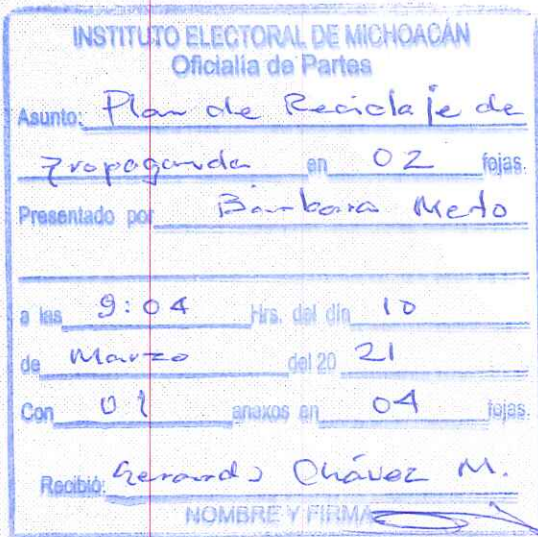 INSTITUTO ELECTORAL DE MICHOACÁN
Oficialía de Partes
Asunto: Plan de Reciclaje de
Propaganda en 02 fojas.
Presentado por Bárbara Merlo
a las 9:04 Hrs. del día 10
de Marzo del 20 21
Con 01 anexos en 04 fojas.
Recibió: Gerardo Chávez M.
NOMBRE Y FIRMA